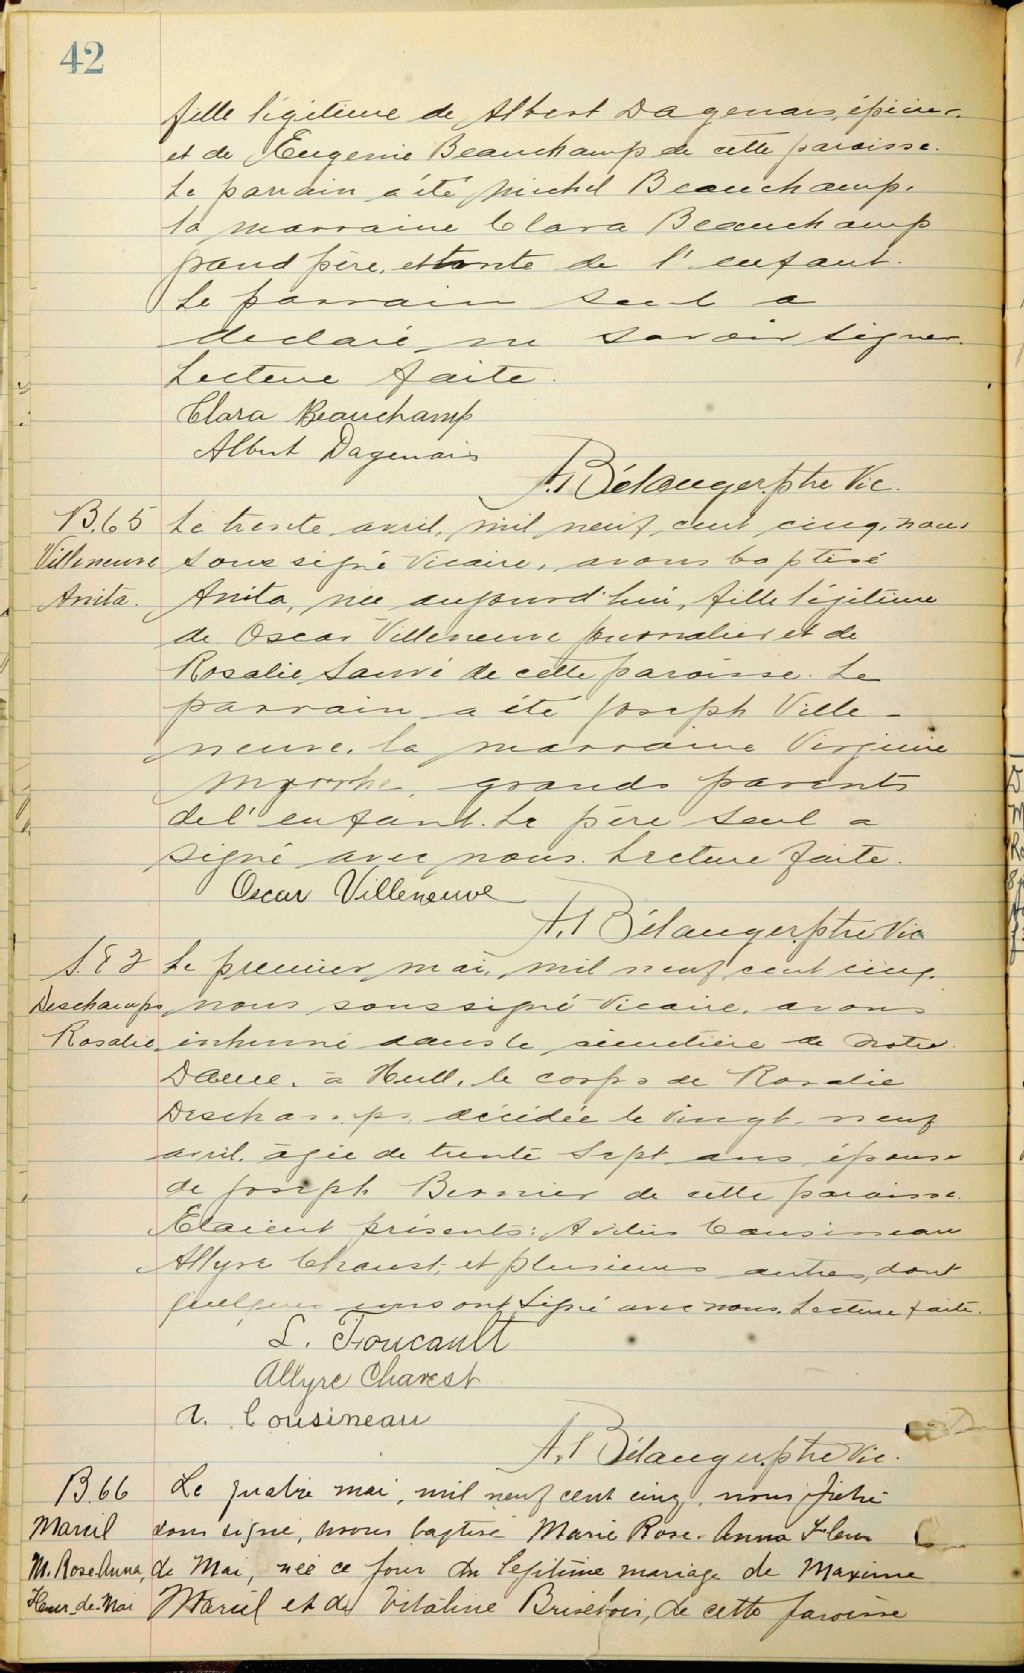 42
fille légitime de Albert Dagenais, épicier
et de Eugenie Beauchamp de cette paroisse.
Le parrain a été Michel Beauchamp.
la marraine Clara Beauchamp
grand père, et tante de l'enfant.
Le parrain seul a
declaré ne savoir signer.
Lecture faite.
Clara Beauchamp
Albert Dagenais
A. Bélanger. ptre Vic.
B.65
Villeneuve
Anita.
Le trente avril, mil neuf cent cinq, nous
soussigné Vicaire, avons baptisé
Anita, née aujourd'hui, fille légitime
de Oscar Villeneuve journalier et de
Rosalie Sauvé de cette paroisse. Le
parrain a été Joseph Ville-
neuve, la marraine Virginie
grands parents
de l'enfant. Le père seul a
signé avec nous. Lecture faite.
Oscar Villeneuve
A. Bélanger. ptre Vic
Deschamps
Rosalie.
Le premier mai, mil neuf cent cinq.
nous soussigné Vicaire, avons
inhumé dans le cimetière de Notre
Dame, à Hull, le corps de Rosalie
Deschamps, décédée le vingt-neuf
avril, âgée de trente sept ans, épouse
de Joseph Bernier de cette paroisse.
Etaient présents: Cousineau
Allyre Charest, et plusieurs autres, dont
quelques uns ont signé avec nous. Lecture faite.
L. Foucault
Allyre Charest
A. Cousineau
A. Bélanger. ptre Vic.
B.66
Marcil
M. Rose-Anna,
Fleur-de-Mai
Le quatre mai, mil neuf cent cinq, nous prêtre
soussigné, avons baptisé Marie Rose-Anna Fleur
de Mai, née ce jour du légitime mariage de Maxime
Marcil et de Vitaline Brisebois, de cette paroisse